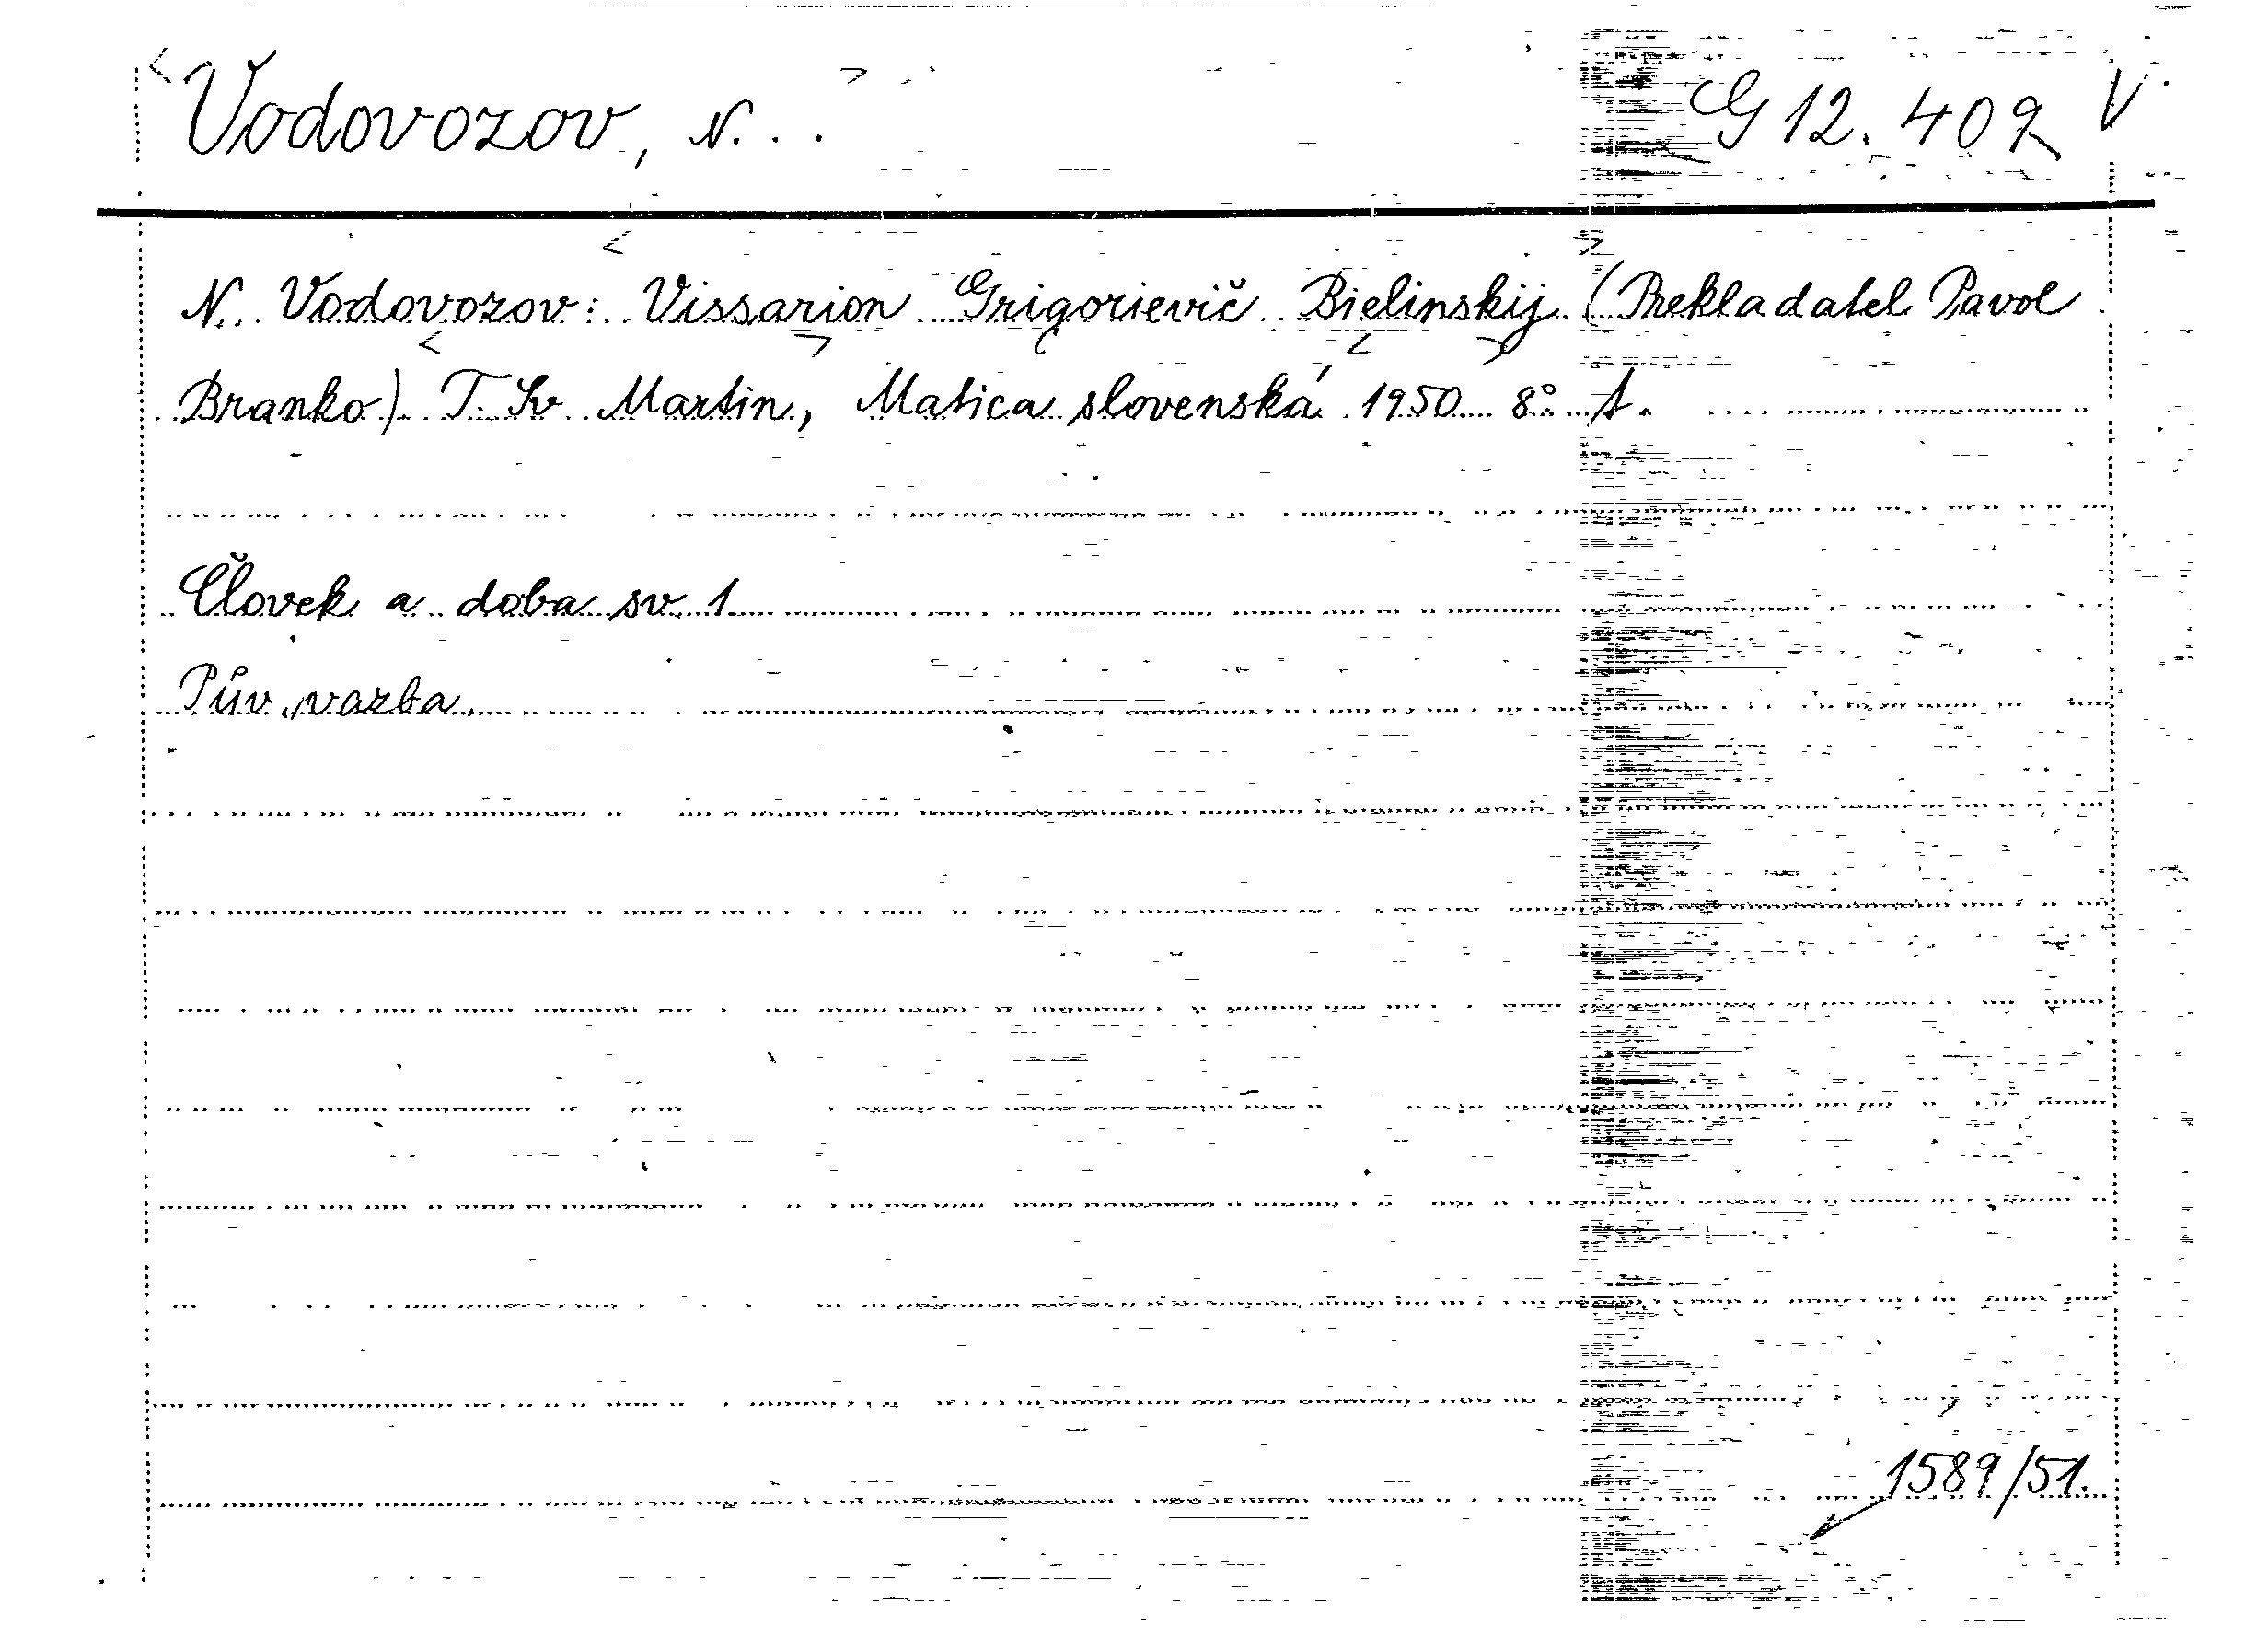 Vodovozov, N. . . G 12.409 V
N. Vodovozov: Vissarion Grigorievič Bielinskij (Prekladatel Pavol
Branko) T. Sv. Martin, Matica slovenská 1950 8°
Človek a doba sv. 1.
Pův. vazba.
1589/51.